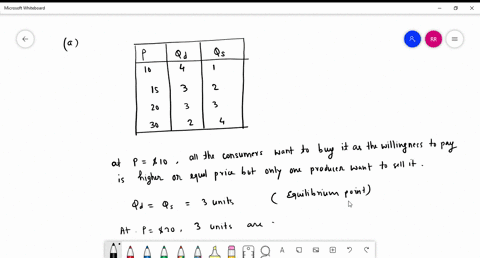 Microsoft Whiteboard
RR
(a)
P Qd Qs
10 4 1
15 3 2
20 3 3
30 2 4
at P = $10, all the consumers want to buy it as the willingness to pay
is higher or equal price but only one producer want to sell it.
Qd = Qs = 3 units ( Equilibrium point)
At P = $20, 3 units are